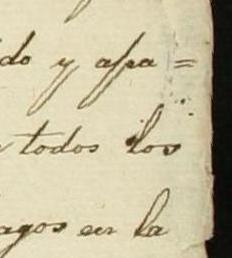 do y apa=
todos los
agos en la